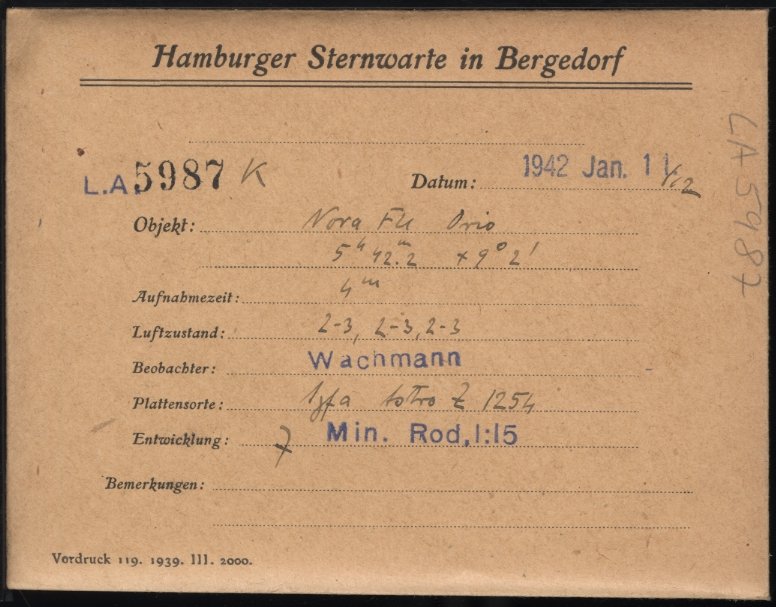 Hamburger Sternwarte in Bergedorf
L.A. 5987 K
Datum: 1942 Jan. 11/12
Objekt: Nova FU Orio
5ʰ 42.ᵐ2 +9° 2'
Aufnahmezeit: 4ᵐ
Luftzustand: 2-3, 2-3, 2-3
Beobachter: Wachmann
Plattensorte: Agfa Astro Z 1254
Entwicklung: 7 Min. Rod, 1:15
Bemerkungen:
Vordruck 119. 1939. III. 2000.
LA 5987